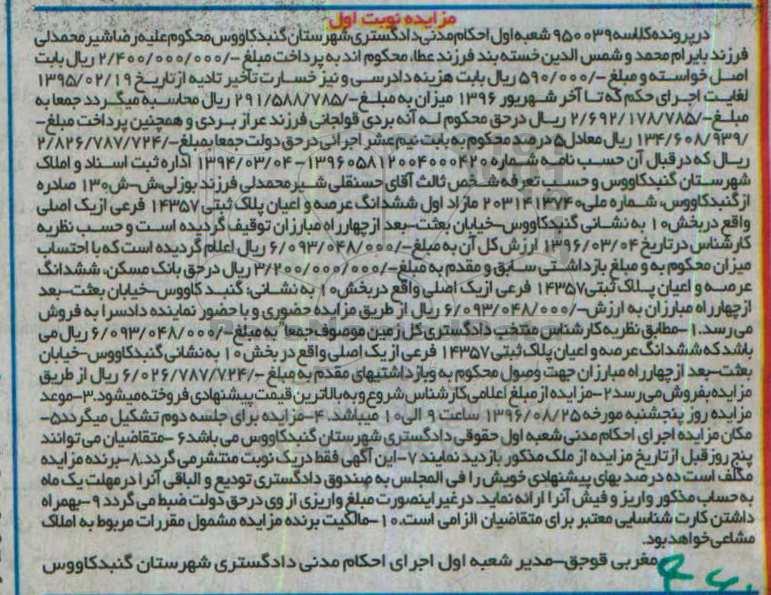 مزایده نوبت اول
در پرونده کلاسه ۹۵۰۰۳۹ شعبه اول احکام مدنی دادگستری شهرستان گنبدکاووس محکوم علیه رضا شیرمحمدلی
فرزند بایرام محمد و شمس الدین خسته بند فرزند عطا، محکوم اند به پرداخت مبلغ -/۲/۴۰۰/۰۰۰/۰۰۰ ریال بابت
اصل خواسته و مبلغ -/۵۹۰/۰۰۰ ریال بابت هزینه دادرسی و نیز خسارت تأخیر تادیه از تاریخ ۱۳۹۵/۰۲/۱۹
لغایت اجرای حکم که تا آخر شهریور ۱۳۹۶ میزان به مبلغ -/۲۹۱/۵۸۸/۷۸۵ ریال محاسبه میگردد جمعا به
مبلغ -/۲/۶۹۲/۱۷۸/۷۸۵ ریال در حق محکوم له آنه بردی قولجانی فرزند عراز بردی و همچنین پرداخت مبلغ -
/۱۳۴/۶۰۸/۹۳۹ ریال معادل ۵ درصد محکوم به بابت نیم عشر اجرائی در حق دولت جمعا بمبلغ -/۲/۸۲۶/۷۸۷/۷۲۴
ریال که در قبال آن حسب نامه شماره ۱۳۹۶۰۵۸۱۲۰۰۴۰۰۰۴۲۰ - ۱۳۹۴/۰۳/۰۴ اداره ثبت اسناد و املاک
شهرستان گنبدکاووس و حسب تعرفه شخص ثالث آقای حسنقلی شیرمحمدلی فرزند بوزلی،ش-ش۱۳۰ صادره
از گنبدکاووس، شماره ملی ۲۰۳۱۴۱۳۷۴۰ مازاد اول ششدانگ عرصه و اعیان پلاک ثبتی ۱۴۳۵۷ فرعی از یک اصلی
واقع در بخش ۱۰ به نشانی گنبدکاووس-خیابان بعثت-بعد از چهارراه مبارزان توقیف گردیده است و حسب نظریه
کارشناس در تاریخ ۱۳۹۶/۰۳/۰۴ ارزش کل آن به مبلغ -/۶/۰۹۳/۰۴۸/۰۰۰ ریال اعلام گردیده است که با احتساب
میزان محکوم به و مبلغ بازداشتی سابق و مقدم به مبلغ -/۳/۲۰۰/۰۰۰/۰۰۰ ریال در حق بانک مسکن، ششدانگ
عرصه و اعیان پلاک ثبتی ۱۴۳۵۷ فرعی از یک اصلی واقع در بخش ۱۰ به نشانی: گنبد کاووس-خیابان بعثت-بعد
از چهارراه مبارزان به ارزش -/۶/۰۹۳/۰۴۸/۰۰۰ ریال از طریق مزایده حضوری و با حضور نماینده دادسرا به فروش
می رسد. ۱-مطابق نظریه کارشناس منتخب دادگستری کل زمین موصوف جمعاً به مبلغ -/۶/۰۹۳/۰۴۸/۰۰۰ ریال می
باشد که ششدانگ عرصه و اعیان پلاک ثبتی ۱۴۳۵۷ فرعی از یک اصلی واقع در بخش ۱۰ به نشانی گنبدکاووس-خیابان
بعثت-بعد از چهارراه مبارزان جهت وصول محکوم به و بازداشتیهای مقدم به مبلغ -/۶/۰۲۶/۷۸۷/۷۲۴ ریال از طریق
مزایده بفروش می رسد ۲-مزایده از مبلغ اعلامی کارشناس شروع و به بالاترین قیمت پیشنهادی فروخته میشود.۳-موعد
مزایده روز پنجشنبه مورخه ۱۳۹۶/۰۸/۲۵ ساعت ۹ الی ۱۰ میباشد. ۴-مزایده برای جلسه دوم تشکیل میگردد ۵-
مکان مزایده اجرای احکام مدنی شعبه اول حقوقی دادگستری شهرستان گنبدکاووس می باشد ۶-متقاضیان می توانند
پنج روز قبل از تاریخ مزایده از ملک مذکور بازدید نمایند ۷-این آگهی فقط در یک نوبت منتشر می گردد.۸-برنده مزایده
مکلف است ده درصد بهای پیشنهادی خویش را فی المجلس به صندوق دادگستری تودیع و الباقی آنرا در مهلت یک ماه
به حساب مذکور واریز و فیش آنرا ارائه نماید. در غیر اینصورت مبلغ واریزی از وی در حق دولت ضبط می گردد ۹-بهمراه
داشتن کارت شناسایی معتبر برای متقاضیان الزامی است.۱۰-مالکیت برنده مزایده مشمول مقررات مربوط به املاک
مشاعی خواهد بود.
مغربی قوجق-مدیر شعبه اول اجرای احکام مدنی دادگستری شهرستان گنبدکاووس